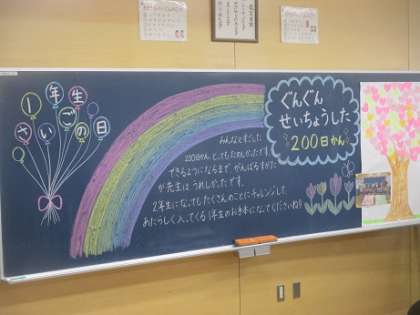 1年生
さいごの日
ぐんぐん
せいちょうした
200日かん
みんなとすごした
200日かん とってもたのしかったです。
できるようになるまで がんばるすがた
が先生は うれしかったです。
2年生になっても たくさんのことにチャレンジして、
あたらしく入ってくる1年生のお手本になってくださいね!!